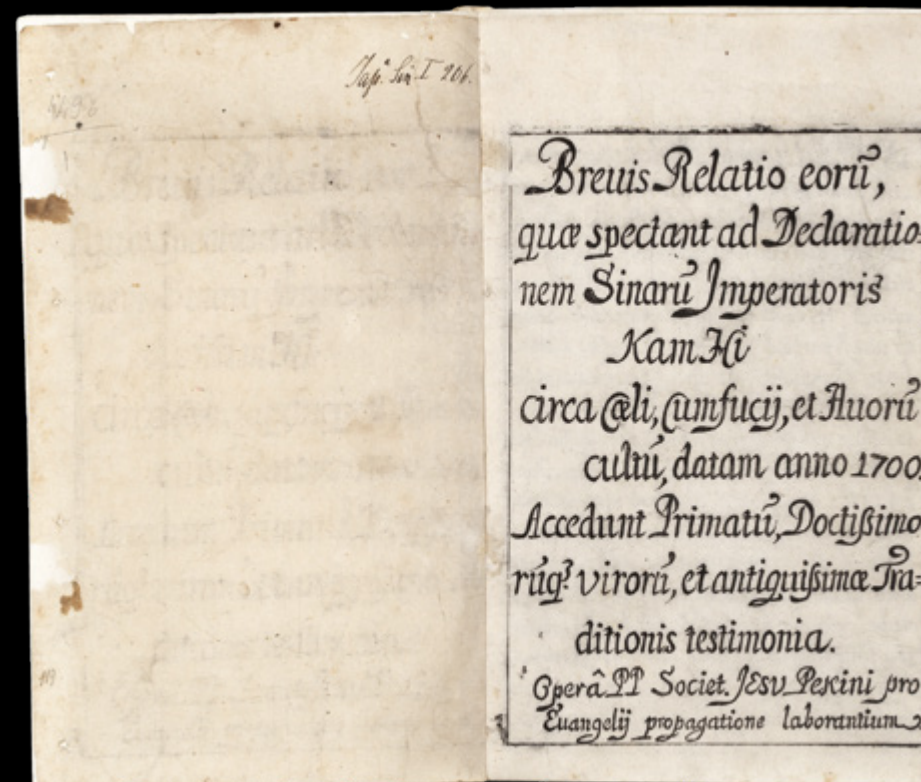 Jap. Sin. I 206.
Breuis Relatio eorũ,
quæ spectant ad Declaratio-
nem Sinarũ Imperatoris
Kam Hi
circa Cœli, Cumfucij, et Auorũ
cultũ, datam anno 1700.
Accedunt Primatũ, Doctißimo
rũq́; virorũ, et antiquißimæ Tra=
ditionis testimonia.
Operâ PP Societ. JEsv Pekini pro
Euangelij propagatione laborantium